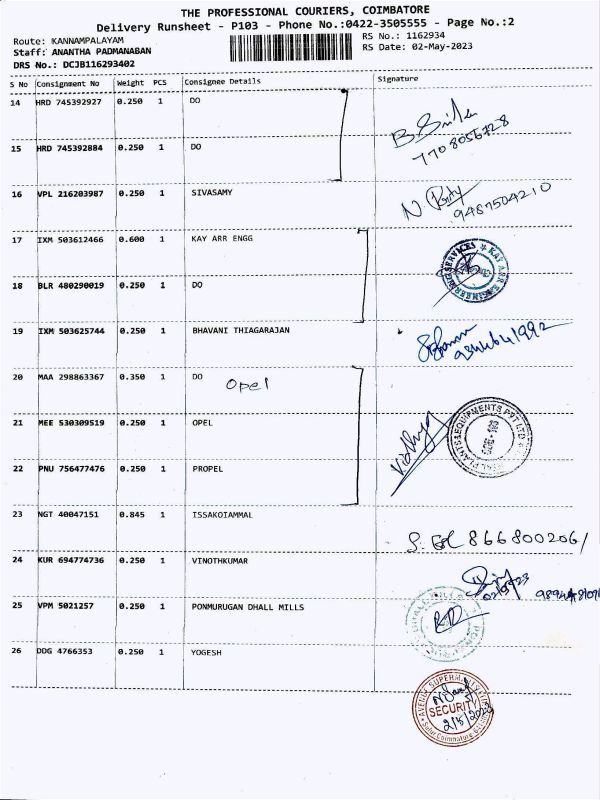 THE PROFESSIONAL COURIERS, COIMBATORE
Delivery Runsheet - P103 - Phone No.:0422-3505555 - Page No.:2
Route: KANNAMPALAYAM
RS No.: 1162934
Staff: ANANTHA PADMANABAN
RS Date: 02-May-2023
DRS No.: DCJB116293402
S No Consignment No Weight PCS Consignee Details Signature
14 HRD 745392927 0.250 1 DO
7708056728
15 HRD 745392884 0.250 1 DO
16 VPL 216203987 0.250 1 SIVASAMY
9487504210
17 IXM 503612466 0.600 1 KAY ARR ENGG
18 BLR 480290019 0.250 1 DO
19 IXM 503625744 0.250 1 BHAVANI THIAGARAJAN
9344641992
20 MAA 298863367 0.350 1 DO Opel
21 MEE 530309519 0.250 1 OPEL
Vidhya
22 PNU 756477476 0.250 1 PROPEL
23 NGT 40047151 0.845 1 ISSAKOIAMMAL
24 KUR 694774736 0.250 1 VINOTHKUMAR
25 VPM 5021257 0.250 1 PONMURUGAN DHALL MILLS
26 DDG 4766353 0.250 1 YOGESH
SECURITY
2/5/2023